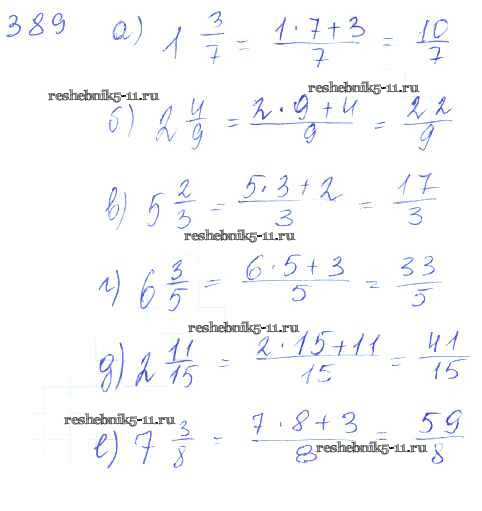 389 а) 1 3/7 = (1·7+3)/7 = 10/7
reshebnik5-11.ru
reshebnik5-11.ru
б) 2 4/9 = (2·9+4)/9 = 22/9
в) 5 2/3 = (5·3+2)/3 = 17/3
reshebnik5-11.ru
г) 6 3/5 = (6·5+3)/5 = 33/5
reshebnik5-11.ru
д) 2 11/15 = (2·15+11)/15 = 41/15
reshebnik5-11.ru
е) 7 3/8 = (7·8+3)/8 = 59/8
reshebnik5-11.ru